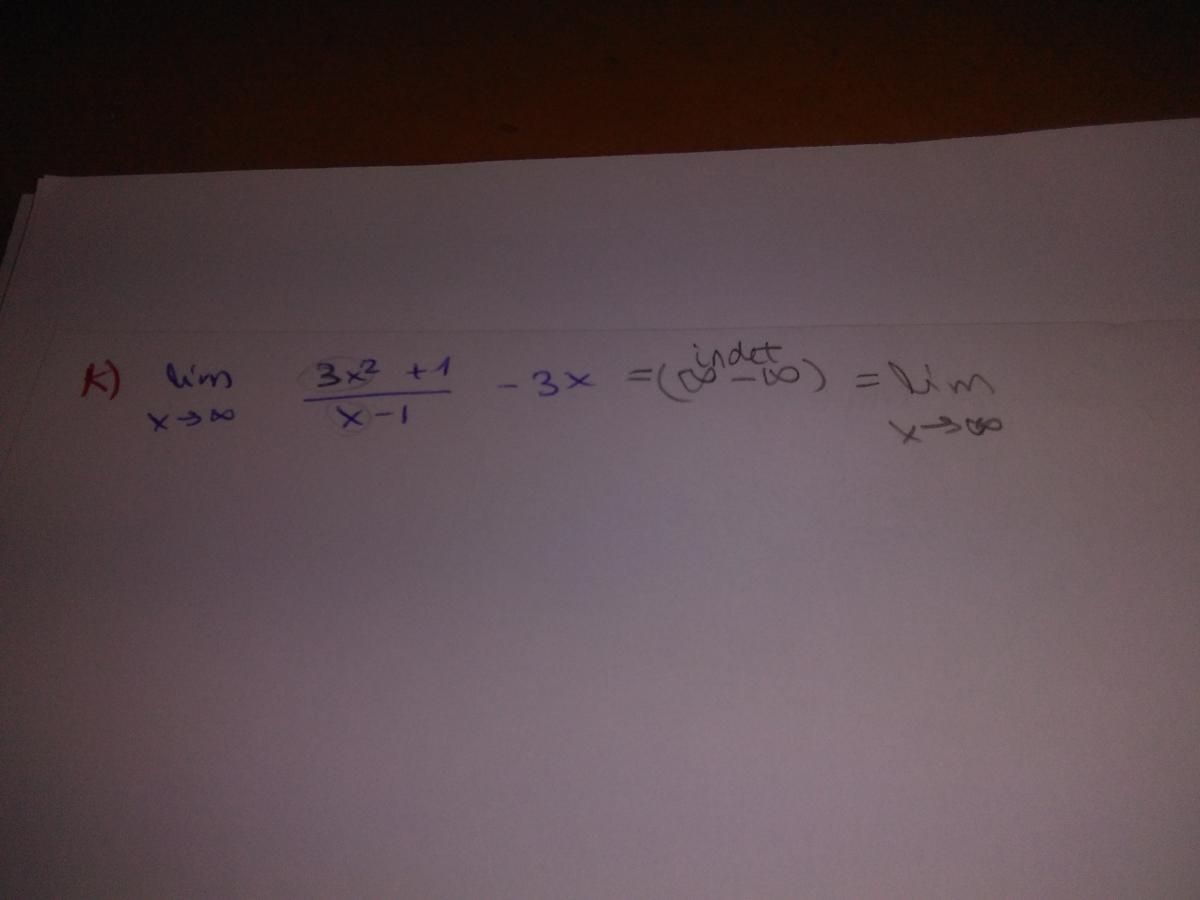 K) lim x→∞ (3x² + 1)/(x - 1) - 3x = (∞ - ∞) indet = lim x→∞